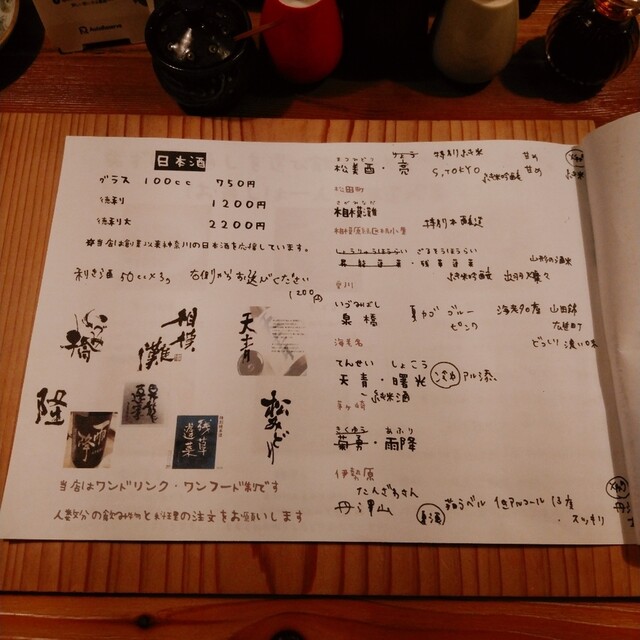 日本酒
グラス 100cc 750円
徳利小 1200円
徳利大 2200円
※当店は創業以来神奈川の日本酒を応援しています。
利き酒 50cc×3ヶ 右側からお選びください
1200円
いづみ橋
相模灘
天青
隆
昇龍蓬莱
雨降
残草蓬莱
松みどり
当店はワンドリンク・ワンフード制です
人数分の飲み物とお料理の注文をお願いします
松美酉・亮 特別純米 甘め
S.TOKYO 純米吟醸 甘め
松田町
さがみなだ
相模灘 特別本醸造
しょうりゅうほうらい ざるそうほうらい
昇龍蓬莱・残草蓬莱 山形の酒米
純米吟醸 出羽燦々
愛川
いづみばし
泉橋 夏ヤゴ ブルー 海老名産 山田錦
ピンク
どっしり 濃い味
海老名
てんせい しょこう
天青・曙光 アル添
純米酒
茅ヶ崎
きくゆう あふり
菊勇・雨降
伊勢原
たんざわさん
丹澤山 夏酒 低アルコール
スッキリ